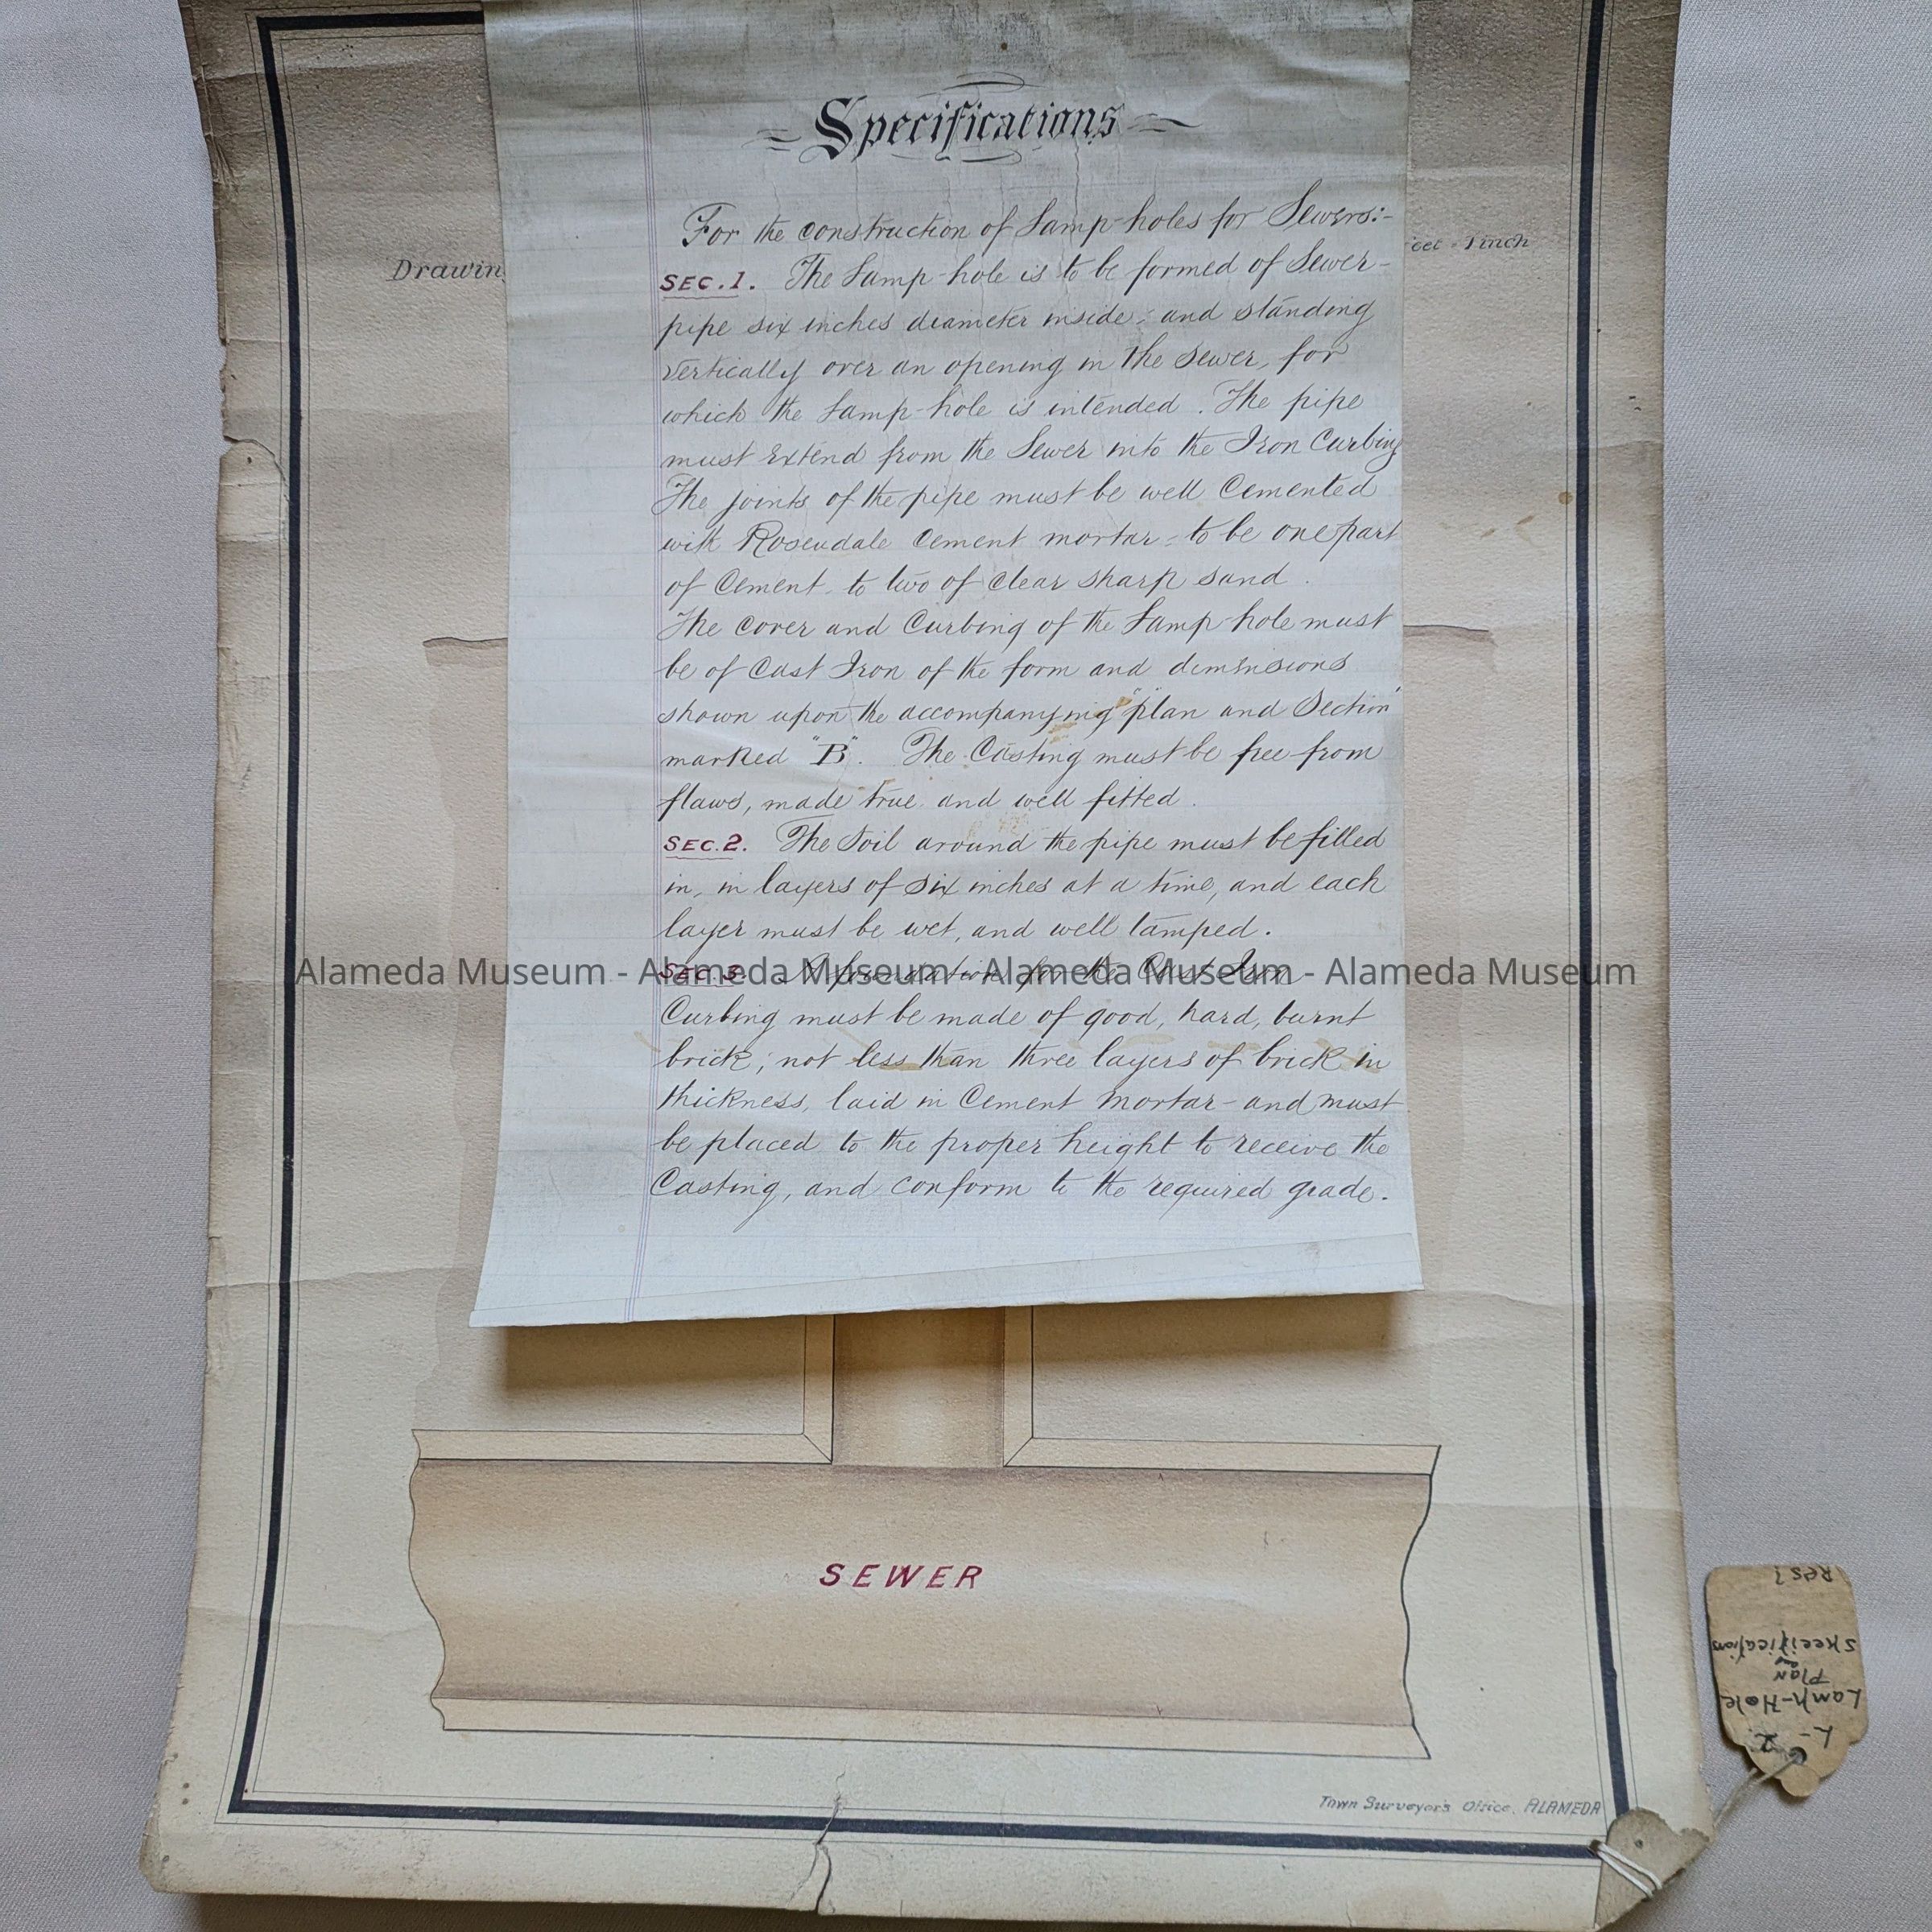 Specifications
For the construction of Lamp-holes for Sewers:-
SEC.1. The Lamp-hole is to be formed of Sewer-
pipe six inches diameter inside; and standing
vertically over an opening in the Sewer, for
which the Lamp-hole is intended. The pipe
must extend from the Sewer into the Iron Curbing
The joints of the pipe must be well Cemented
with Rosendale Cement mortar - to be one part
of Cement to two of clear sharp sand.
The cover and Curbing of the Lamp-hole must
be of Cast Iron of the form and dimensions
shown upon the accompanying "plan and Section"
marked "B". The Casting must be free from
flaws, made true and well fitted.
SEC.2. The Soil around the pipe must be filled
in, in layers of six inches at a time, and each
layer must be wet, and well tamped.
SEC.3. A foundation for the Cast Iron
Curbing must be made of good, hard, burnt
brick; not less than three layers of brick in
thickness, laid in Cement Mortar - and must
be placed to the proper height to receive the
Casting, and conform to the required grade.
Drawin
eet = 1 inch
Alameda Museum - Alameda Museum - Alameda Museum - Alameda Museum
SEWER
Town Surveyor's Office. ALAMEDA
L-2
Lamp-Hole
Plan
and
Specifications